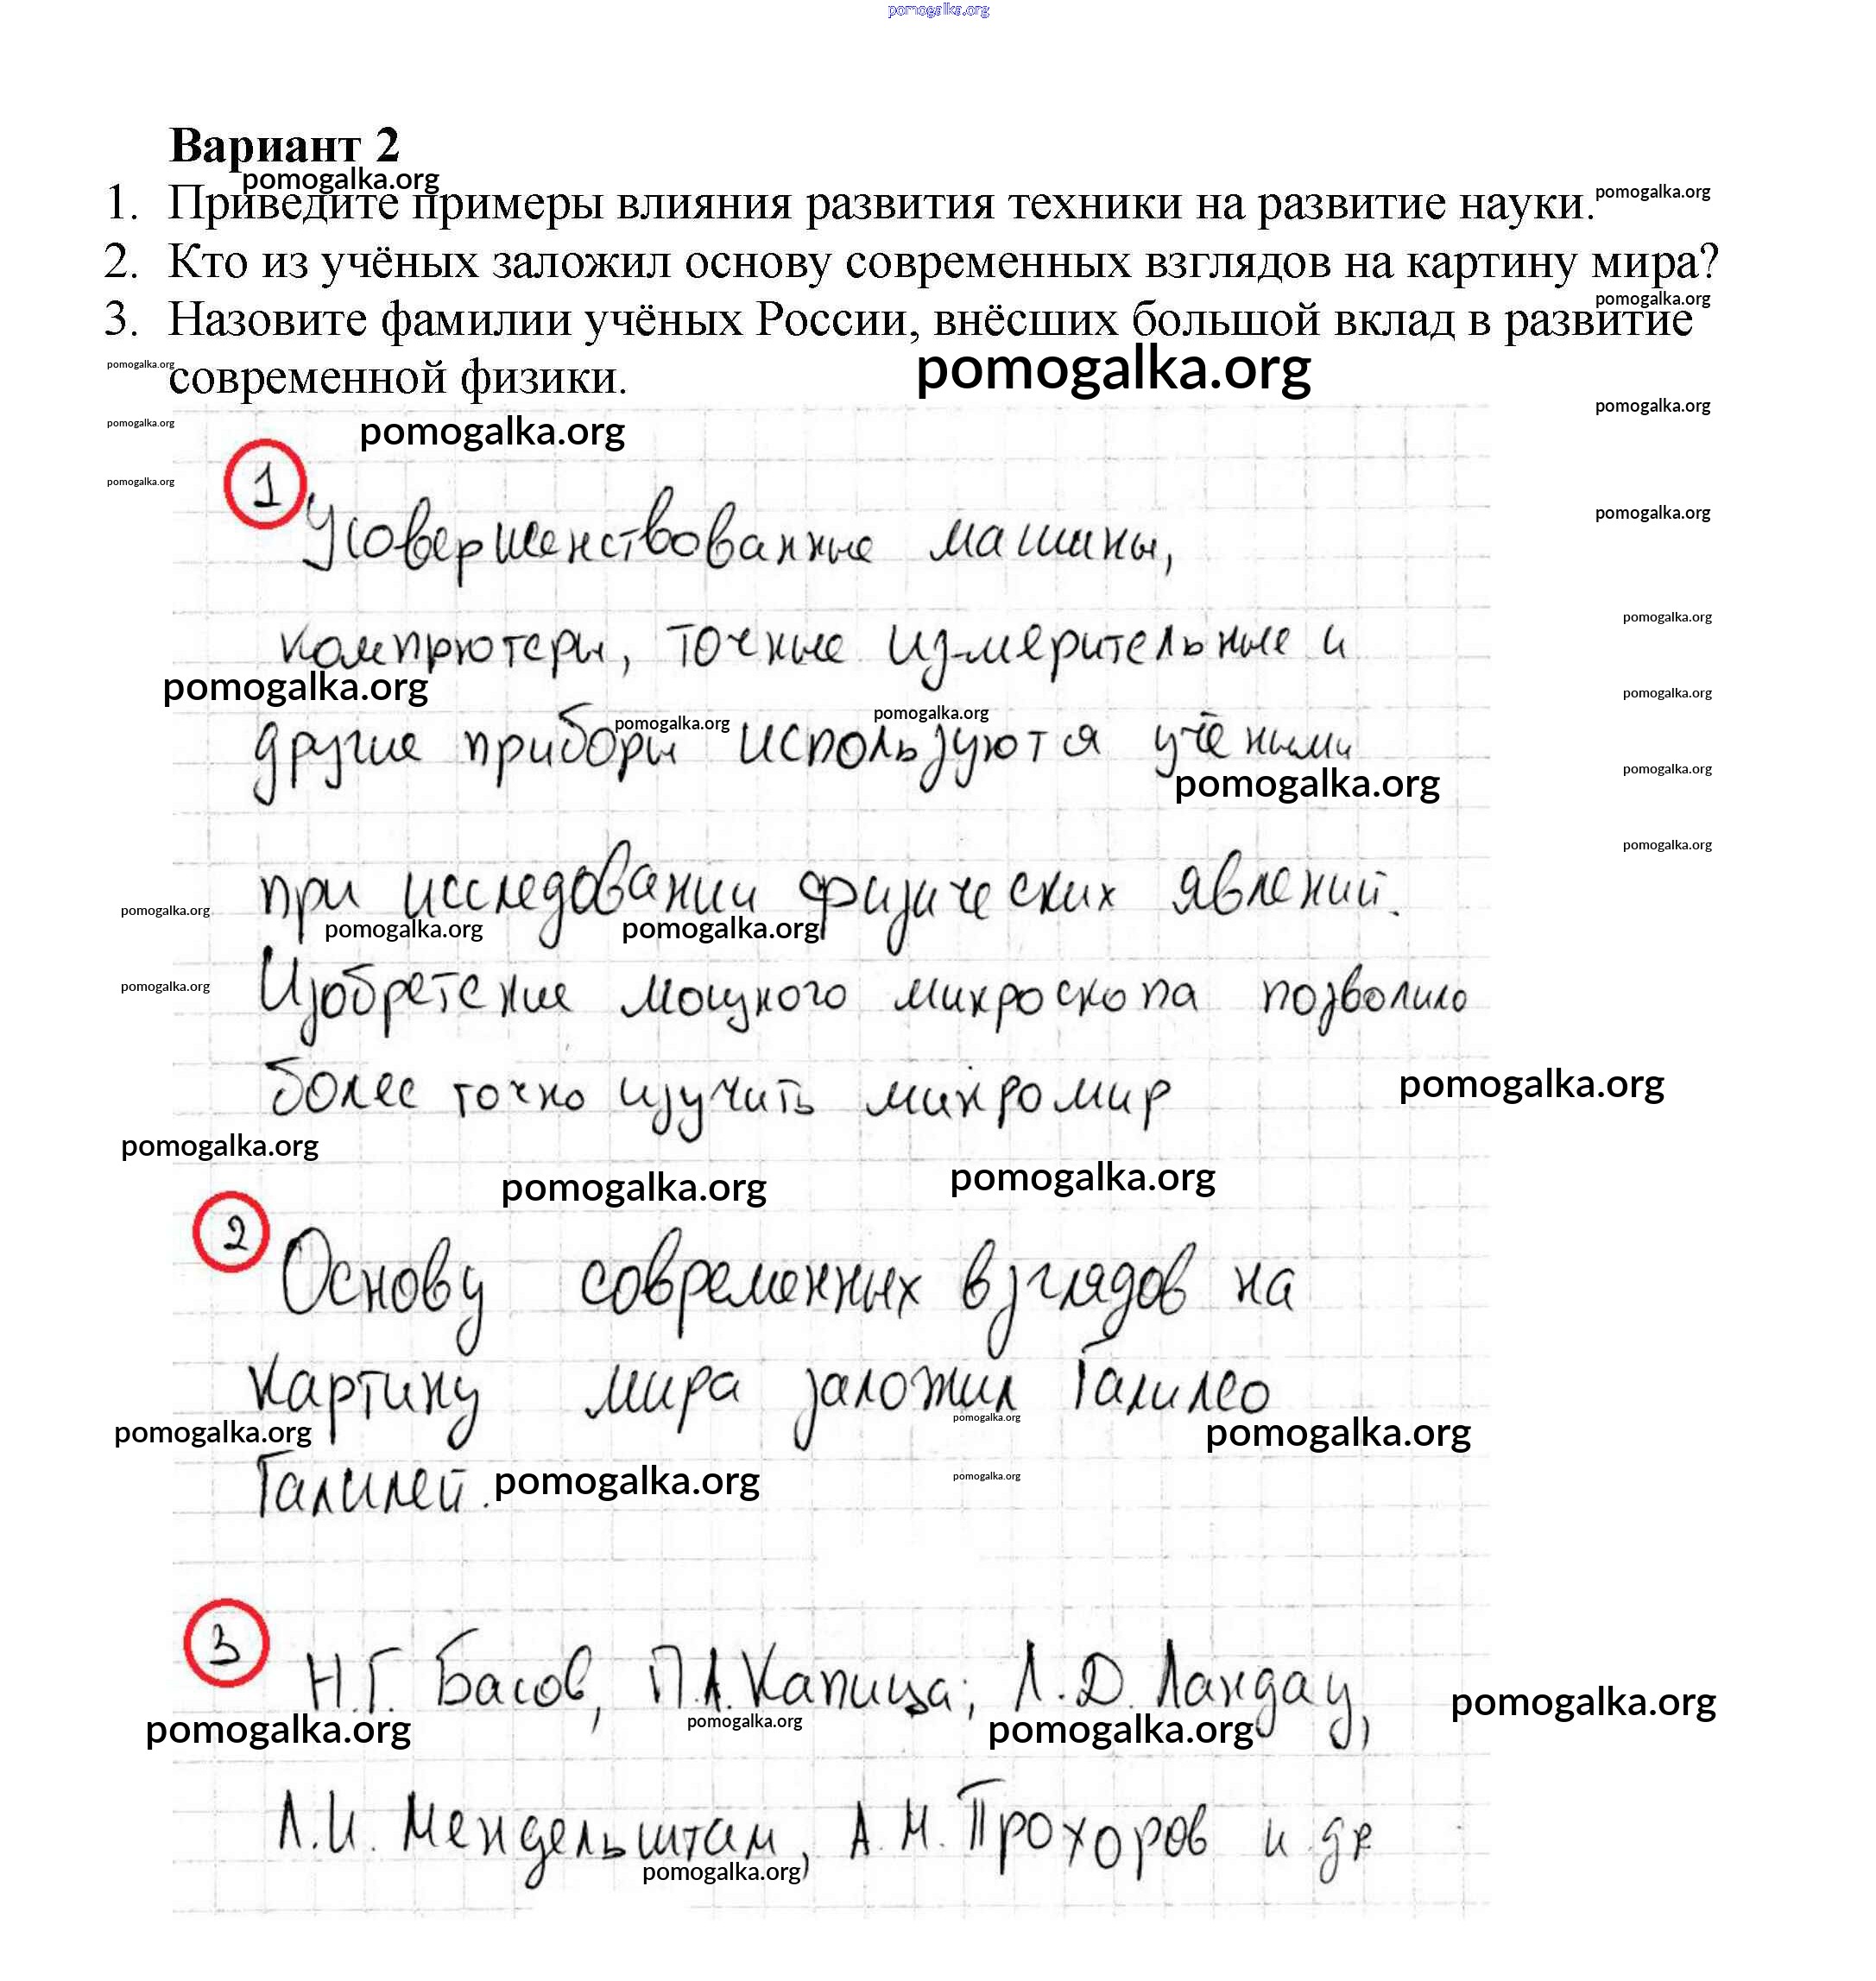 pomogalka.org
Вариант 2
pomogalka.org
1. Приведите примеры влияния развития техники на развитие науки.
pomogalka.org
2. Кто из учёных заложил основу современных взглядов на картину мира?
pomogalka.org
3. Назовите фамилии учёных России, внёсших большой вклад в развитие
pomogalka.org
современной физики.
pomogalka.org
pomogalka.org
pomogalka.org
pomogalka.org
pomogalka.org
1
pomogalka.org
Усовершенствованные машины,
pomogalka.org
компьютеры, точные измерительные и
pomogalka.org
pomogalka.org
pomogalka.org
pomogalka.org
другие приборы используются учёными
pomogalka.org
pomogalka.org
pomogalka.org
при исследовании физических явлений.
pomogalka.org
pomogalka.org
pomogalka.org
pomogalka.org
Изобретение мощного микроскопа позволило
более точно изучить микромир
pomogalka.org
pomogalka.org
pomogalka.org
pomogalka.org
2
Основу современных взглядов на
картину мира заложил Галилео
pomogalka.org
pomogalka.org
pomogalka.org
Галилей.
pomogalka.org
pomogalka.org
3
Н.Г. Басов, П.Л. Капица; Л.Д. Ландау,
pomogalka.org
pomogalka.org
pomogalka.org
pomogalka.org
Л.И. Мендельштам, А.М. Прохоров и др
pomogalka.org